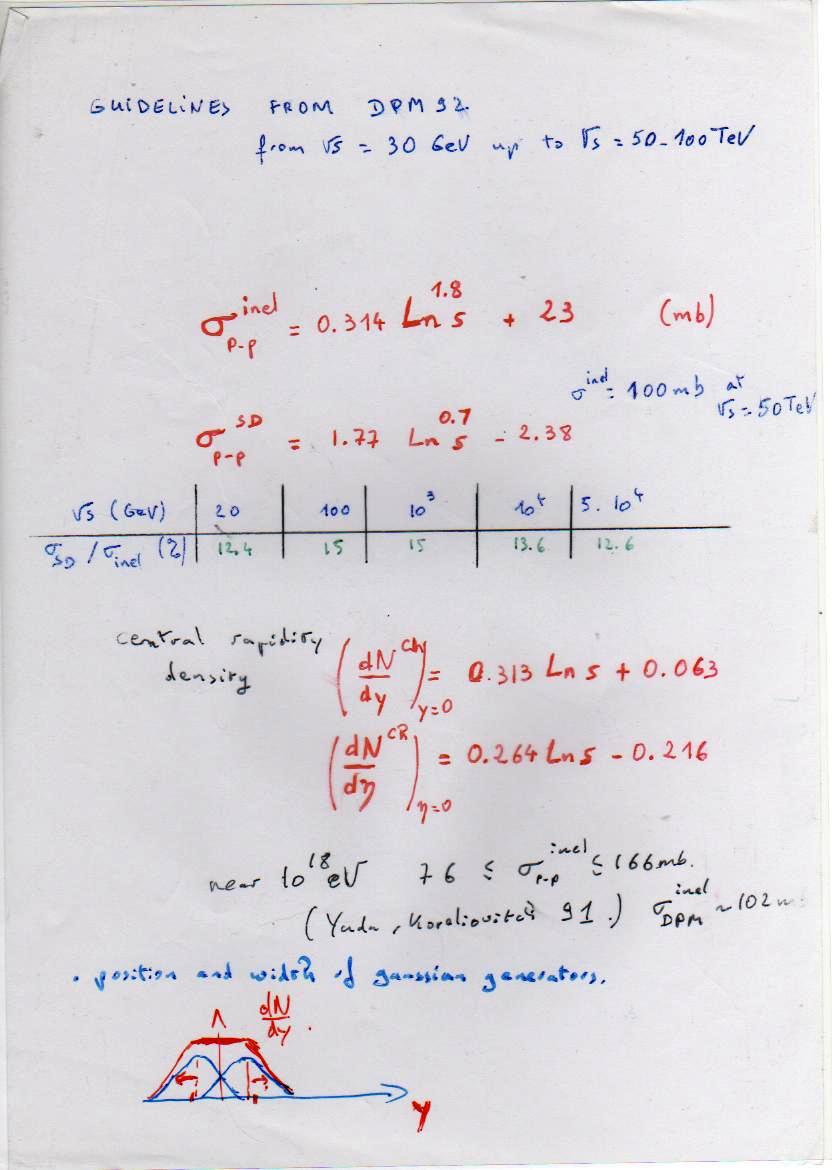 GUIDELINES FROM DPM 92.
from √s = 30 GeV up to √s = 50-100 TeV
σ_{p-p}^{inel} = 0.314 Ln^{1.8} s + 23 (mb)
σ^{inel} = 100 mb at √s = 50 TeV
σ_{p-p}^{SD} = 1.77 Ln^{0.7} s - 2.38
√s (GeV) 20 100 10^3 10^4 5. 10^4
σ_{SD} / σ_{inel} (%) 12.4 15 15 13.6 12.6
central rapidity
density
(dN^{Ch}/dy)_{y=0} = 0.313 Ln s + 0.063
(dN^{CR}/dη)_{η=0} = 0.264 Ln s - 0.216
near 10^{18} eV 76 ≤ σ_{p-p}^{inel} ≤ 166 mb.
(Yuda, 91.) σ_{DPM}^{inel} ~ 102 m
. position and width of gaussian generators.
dN/dy .
y